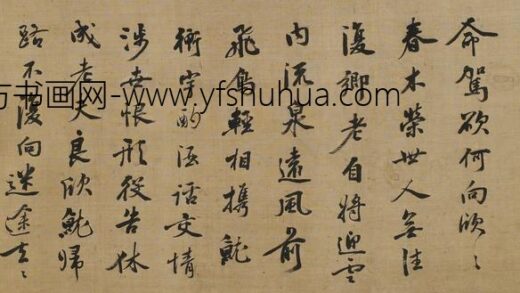 命駕欲何向欣〻
春木榮世人無往
復鄉老自將迎雲
內流泉遠風前
飛鳥輕相攜就
衡宇酌酒話交情
涉世恨形役告休
成老夫良欣就歸
路不復向迷途去〻
方书画网-www.yfshuhua.com